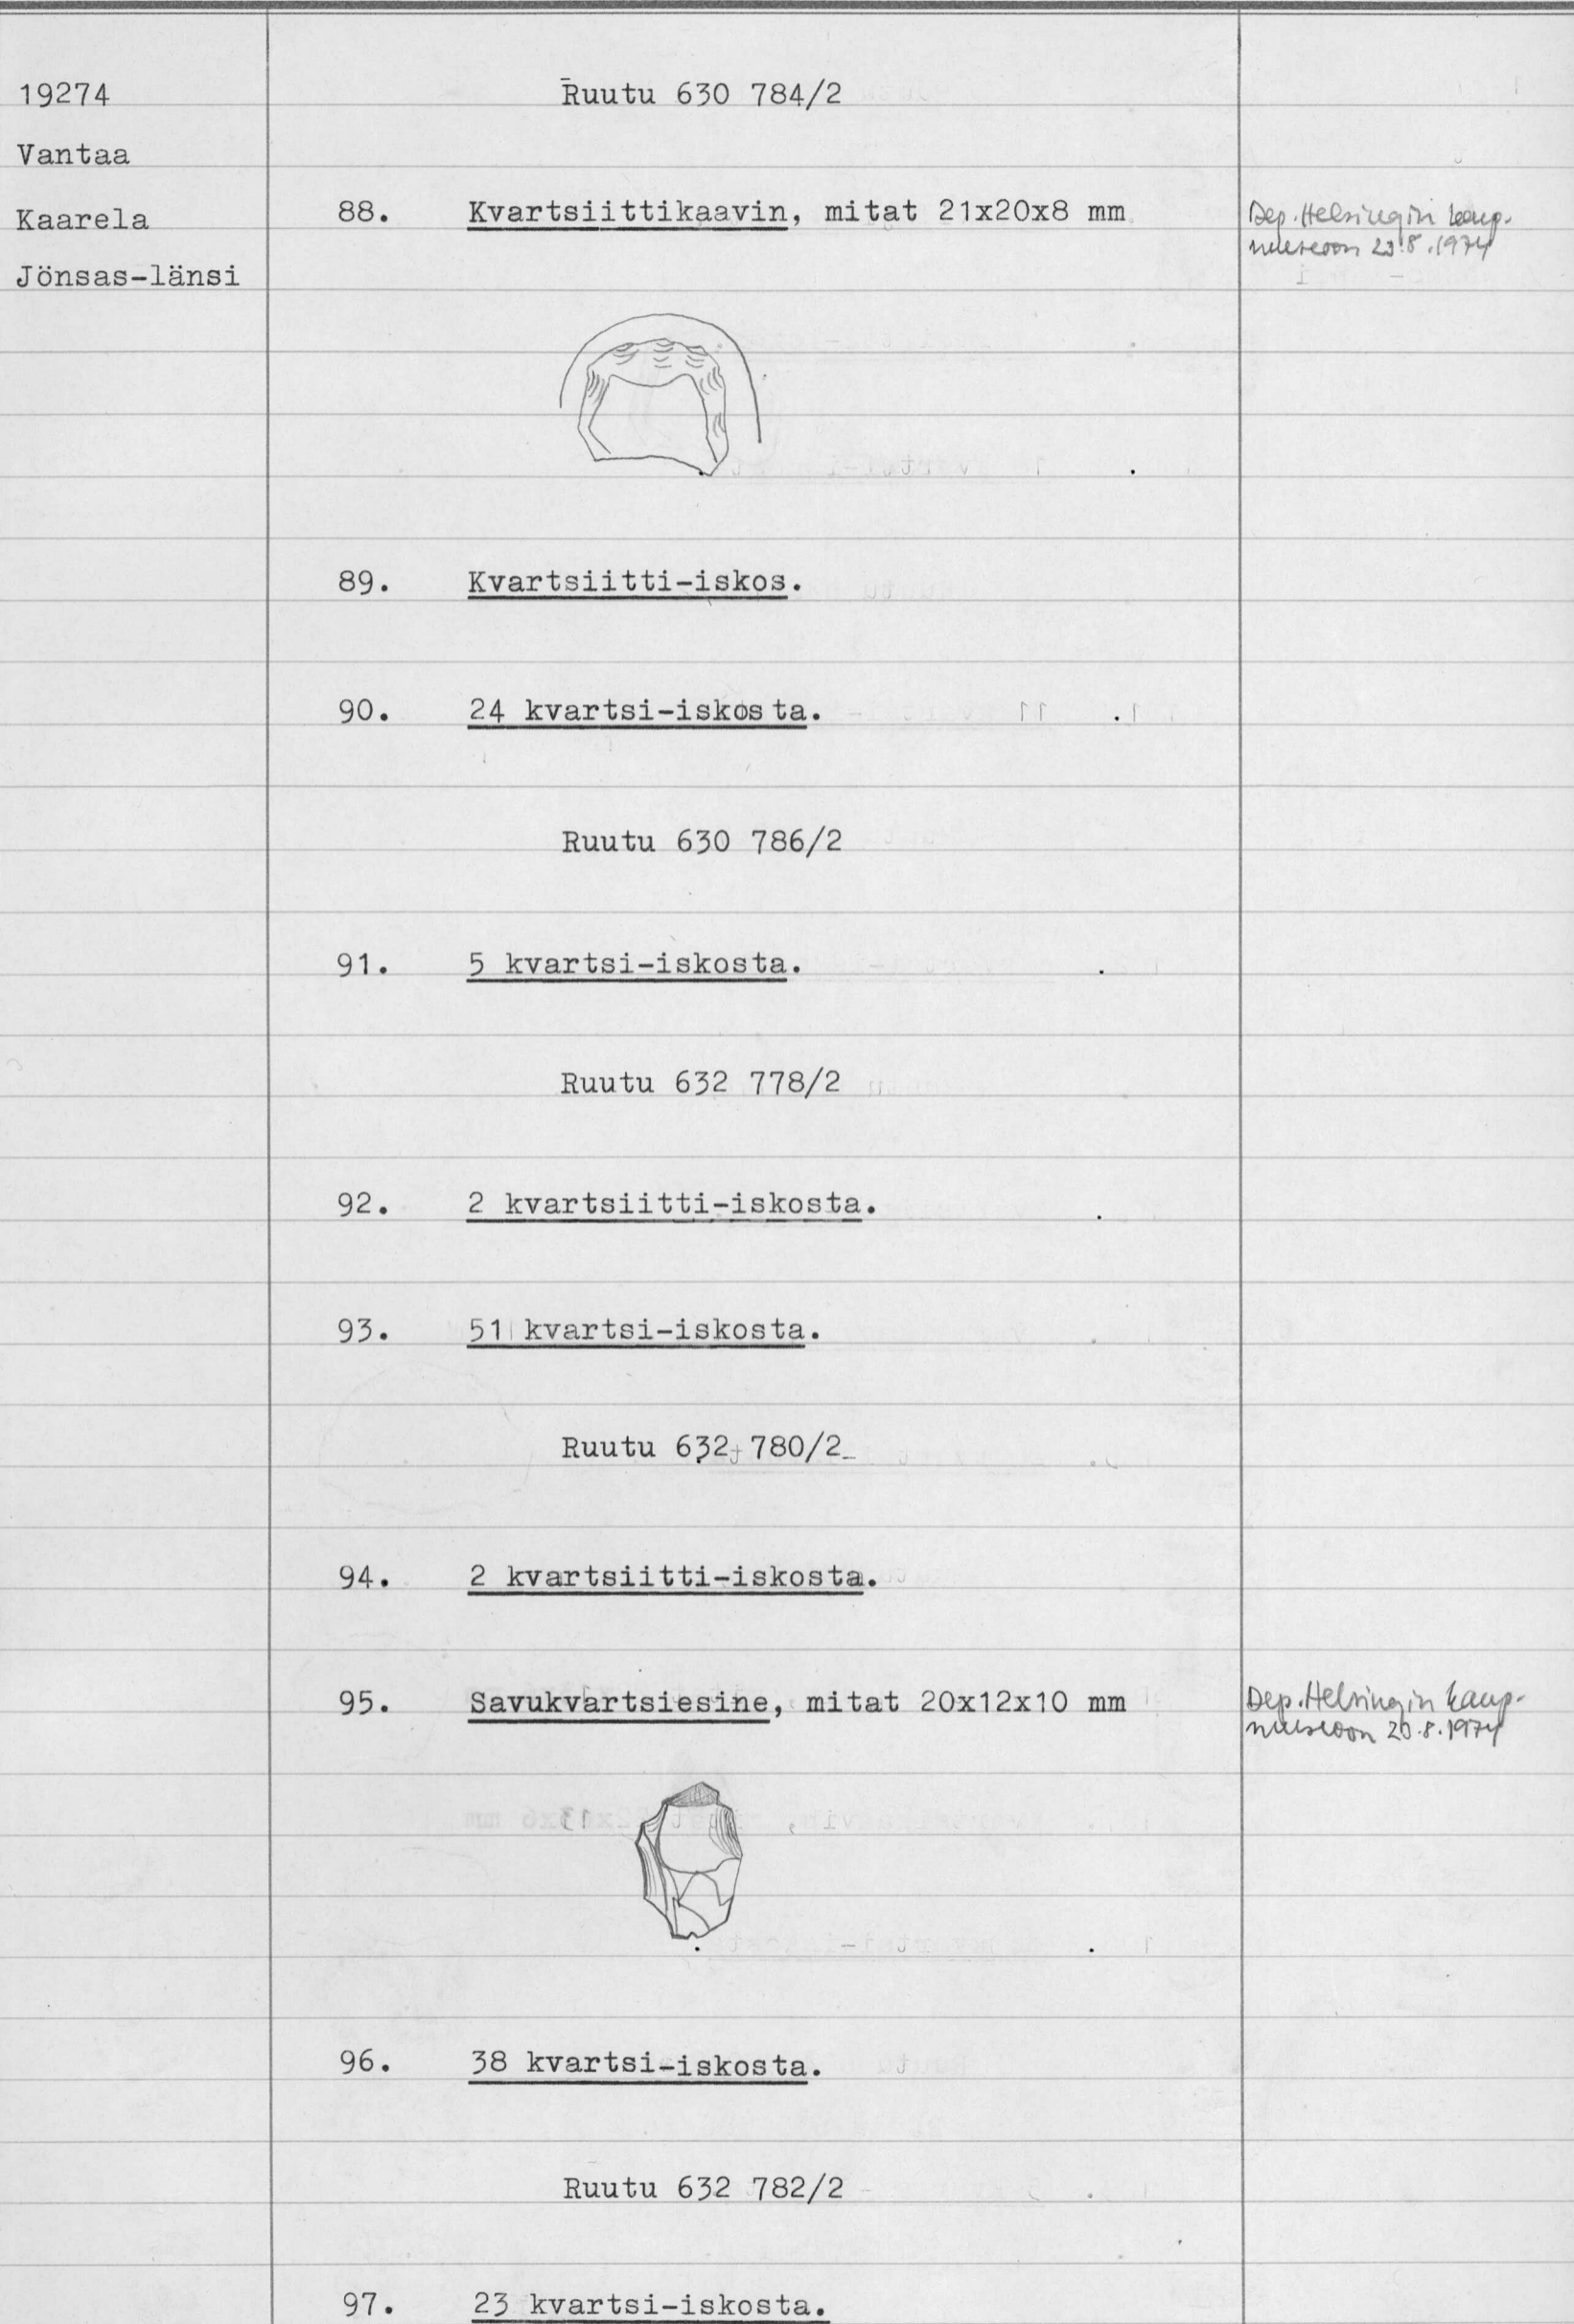 19274
Vantaa
Kaarela
Jönsas-länsi
Ruutu 630 784/2
88. Kvartsiittikaavin, mitat 21x20x8 mm
Dep. Helsingin kaup.
museoon 23.8.1974
89. Kvartsiitti-iskos.
90. 24 kvartsi-iskosta.
Ruutu 630 786/2
91. 5 kvartsi-iskosta.
Ruutu 632 778/2
92. 2 kvartsiitti-iskosta.
93. 51 kvartsi-iskosta.
Ruutu 632 780/2
94. 2 kvartsiitti-iskosta.
95. Savukvartsiesine, mitat 20x12x10 mm
Dep. Helsingin kaup-
museoon 8.1974
96. 38 kvartsi-iskosta.
Ruutu 632 782/2
97. 23 kvartsi-iskosta.